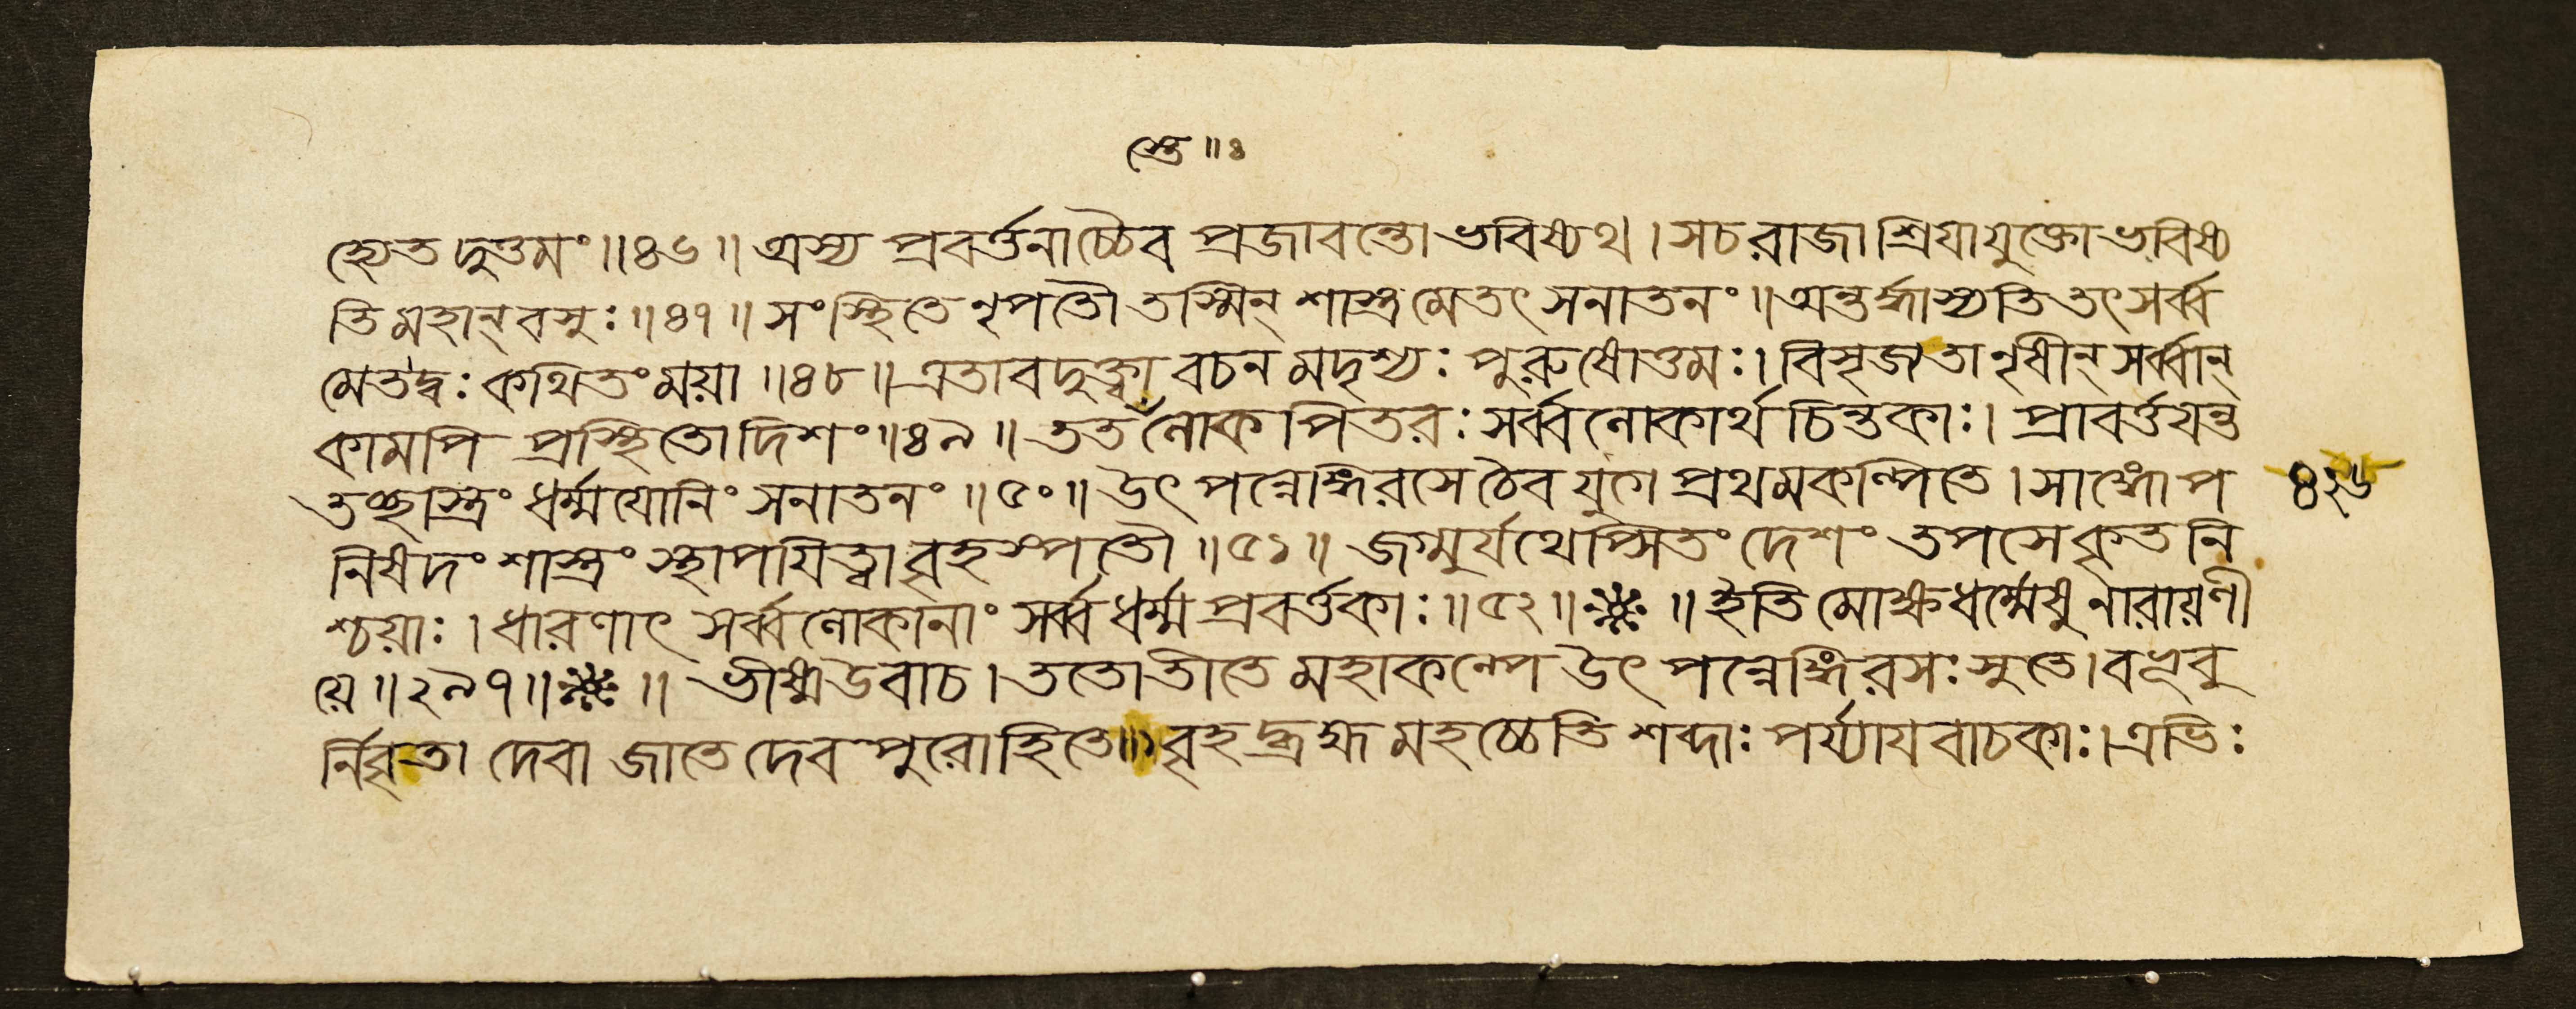 স্তে ॥ ৪
হ্যেতদুত্তমং ॥ ৪৬ ॥ অস্য প্রবর্ত্তনাচ্চৈব প্রজাবন্তো ভবিষ্যথ । সচরাজাশ্রিয়াযুক্তোভবিষ্য
তিমহান্বসুঃ ॥ ৪৭ ॥ সংস্থিতেনৃপতৌতস্মিন্শাস্ত্রমেতৎসনাতনং ॥ অন্তর্দ্ধাস্যতিতৎসর্ব্ব
মেতদ্বঃ কথিতংময়া ॥ ৪৮ ॥ এতাবদুক্ত্বা বচনমদৃশ্যঃ পুরুষোত্তমঃ । বিসৃজ্যতানৃষীন্সর্ব্বান্
কামপি প্রস্থিতোদিশং ॥ ৪৯ ॥ ততলোকপিতরঃ সর্ব্বলোকার্থচিন্তকাঃ । প্রাবর্ত্তয়ন্ত
তচ্ছাস্ত্রং ধর্ম্মযোনিং সনাতনং ॥ ৫০ ॥ উৎপন্নেঙ্গিরসেচৈবযুগেপ্রথমকল্পিতে । সাঙ্গোপ
৪২৬
নিষদংশাস্ত্রংস্থাপয়িত্বাবৃহস্পতৌ ॥ ৫১ ॥ জগ্মুর্যথেপ্সিতংদেশং তপসেকৃতনি
শ্চয়াঃ । ধারণাৎ সর্ব্বলোকানাং সর্ব্বধর্ম্মপ্রবর্ত্তকাঃ ॥ ৫২ ॥ ॥ ইতিমোক্ষধর্ম্মেষুনারায়ণী
য়ে ॥ ২৯৭ ॥ ॥ ভীষ্মউবাচ । ততোতীতেমহাকল্পেউৎপন্নেঙ্গিরসঃসুতে । বভূবু
র্নিবৃতা দেবা জাতেদেবপুরোহিতে ॥ ১ বৃহদ্ব্রহ্মমহচ্চেতিশব্দাঃ পর্য্যায়বাচকাঃ । এভিঃ